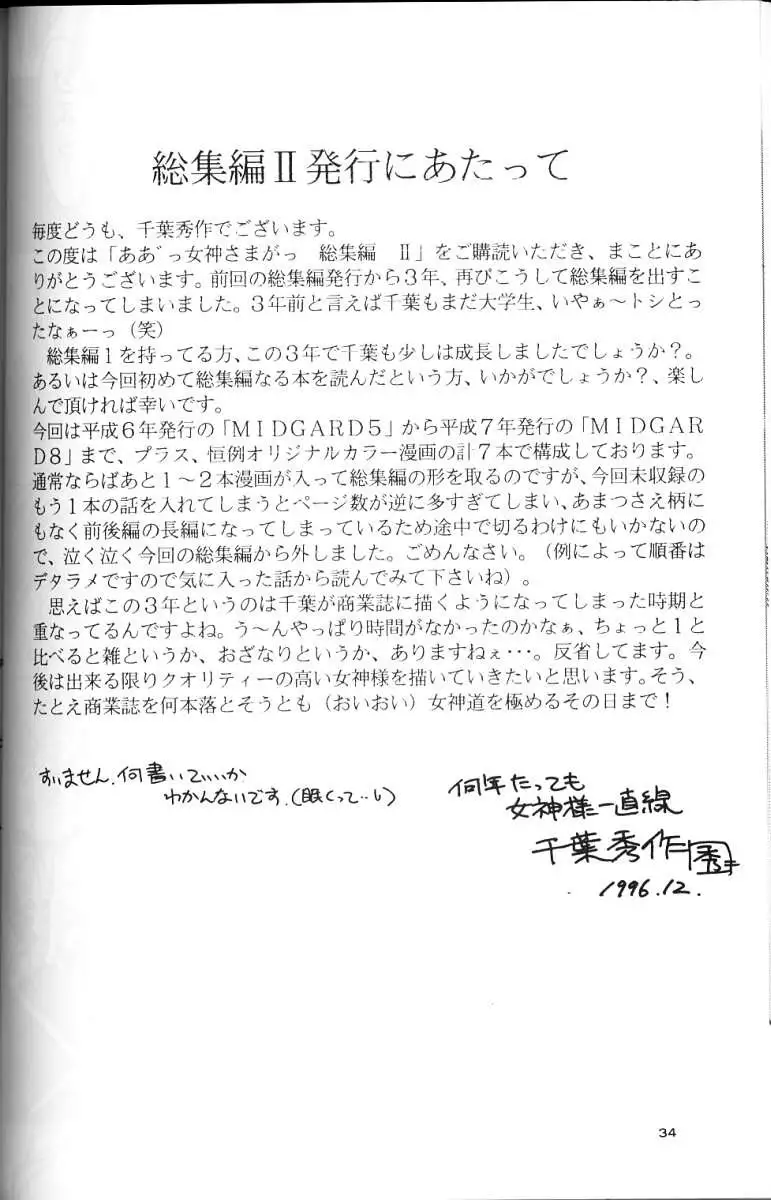 総集編Ⅱ発行にあたって
毎度どうも、千葉秀作でございます。
この度は「ああ゛っ女神さまがっ　総集編　Ⅱ」をご購読いただき、まことにあ
りがとうございます。前回の総集編発行から３年、再びこうして総集編を出すこ
とになってしまいました。３年前と言えば千葉もまだ大学生、いやぁ～トシとっ
たなぁーっ（笑）
　総集編１を持ってる方、この３年で千葉も少しは成長しましたでしょうか？。
あるいは今回初めて総集編なる本を読んだという方、いかがでしょうか？、楽し
んで頂ければ幸いです。
今回は平成６年発行の「ＭＩＤＧＡＲＤ５」から平成７年発行の「ＭＩＤＧＡＲ
Ｄ８」まで、プラス、恒例オリジナルカラー漫画の計７本で構成しております。
通常ならばあと１～２本漫画が入って総集編の形を取るのですが、今回未収録の
もう１本の話を入れてしまうとページ数が逆に多すぎてしまい、あまつさえ柄に
もなく前後編の長編になってしまっているため途中で切るわけにもいかないの
で、泣く泣く今回の総集編から外しました。ごめんなさい。（例によって順番は
デタラメですので気に入った話から読んでみて下さいね）。
　思えばこの３年というのは千葉が商業誌に描くようになってしまった時期と
重なってるんですよね。う～んやっぱり時間がなかったのかなぁ、ちょっと１と
比べると雑というか、おざなりというか、ありますねぇ・・・。反省してます。今
後は出来る限りクオリティーの高い女神様を描いていきたいと思います。そう、
たとえ商業誌を何本落とそうとも（おいおい）女神道を極めるその日まで！
すいません、何書いていいか
わかんないです。(眠くって…い)
何年たっても
女神様一直線
千葉秀作
1996.12.
34